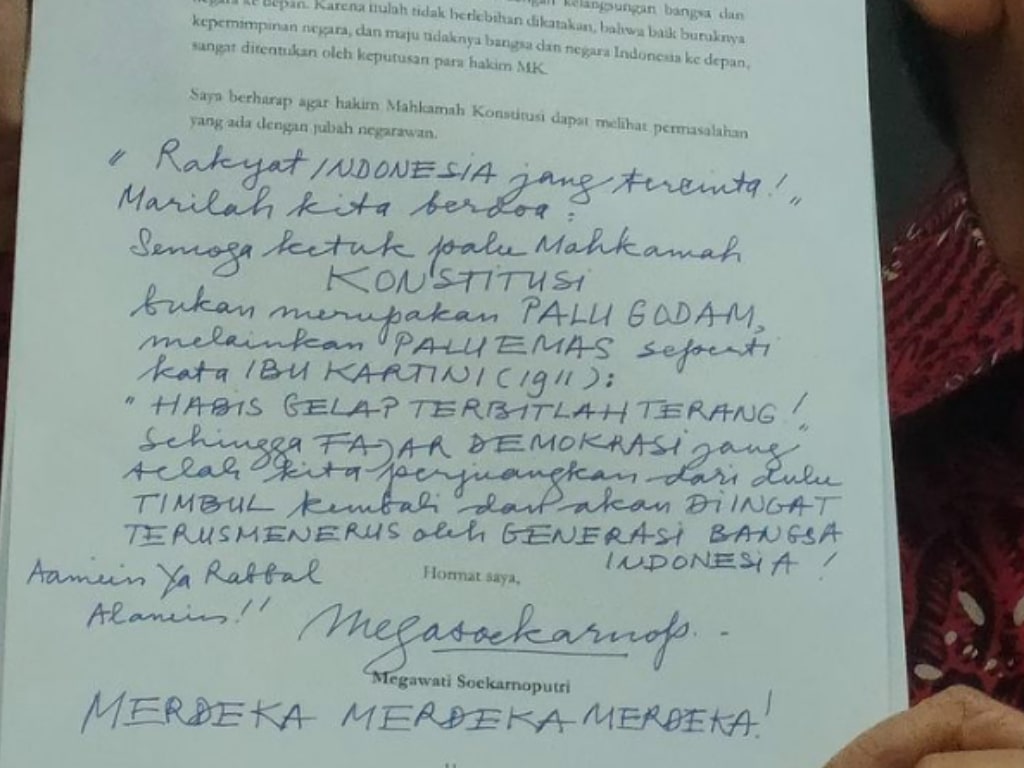 kelangsungan bangsa dan
negara ke depan. Karena itulah tidak berlebihan dikatakan, bahwa baik buruknya
kepemimpinan negara, dan maju tidaknya bangsa dan negara Indonesia ke depan,
sangat ditentukan oleh keputusan para hakim MK.
Saya berharap agar hakim Mahkamah Konstitusi dapat melihat permasalahan
yang ada dengan jubah negarawan.
" Rakyat INDONESIA jang tercinta! "
Marilah kita berdoa :
Semoga ketuk palu Mahkamah
KONSTITUSI
bukan merupakan PALU GODAM,
melainkan PALU EMAS seperti
kata IBU KARTINI (1911):
" HABIS GELAP TERBITLAH TERANG! "
Sehingga FAJAR DEMOKRASI jang
telah kita perjuangkan dari dulu
TIMBUL kembali dan akan DIINGAT
TERUSMENERUS oleh GENERASI BANGSA
INDONESIA !
Aamiin Ya Rabbal
Alamin!!
Hormat saya,
Megasoekarnop.
Megawati Soekarnoputri
MERDEKA MERDEKA MERDEKA!